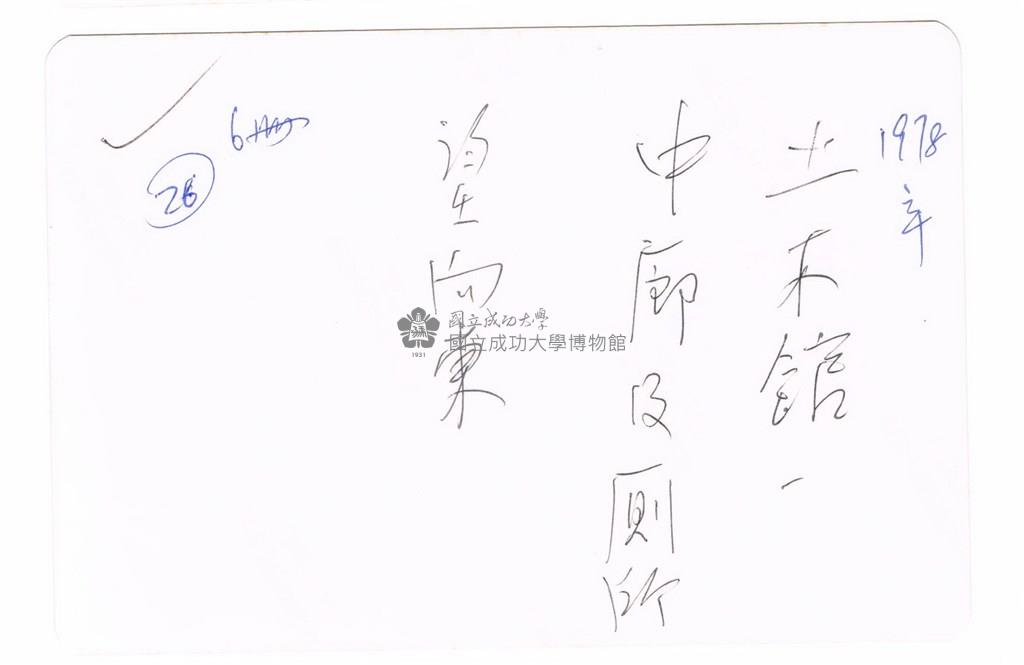 1978年
土木館一
中廊及厠所
望向東
6冊
26
國立成功大學
國立成功大學博物館
1931